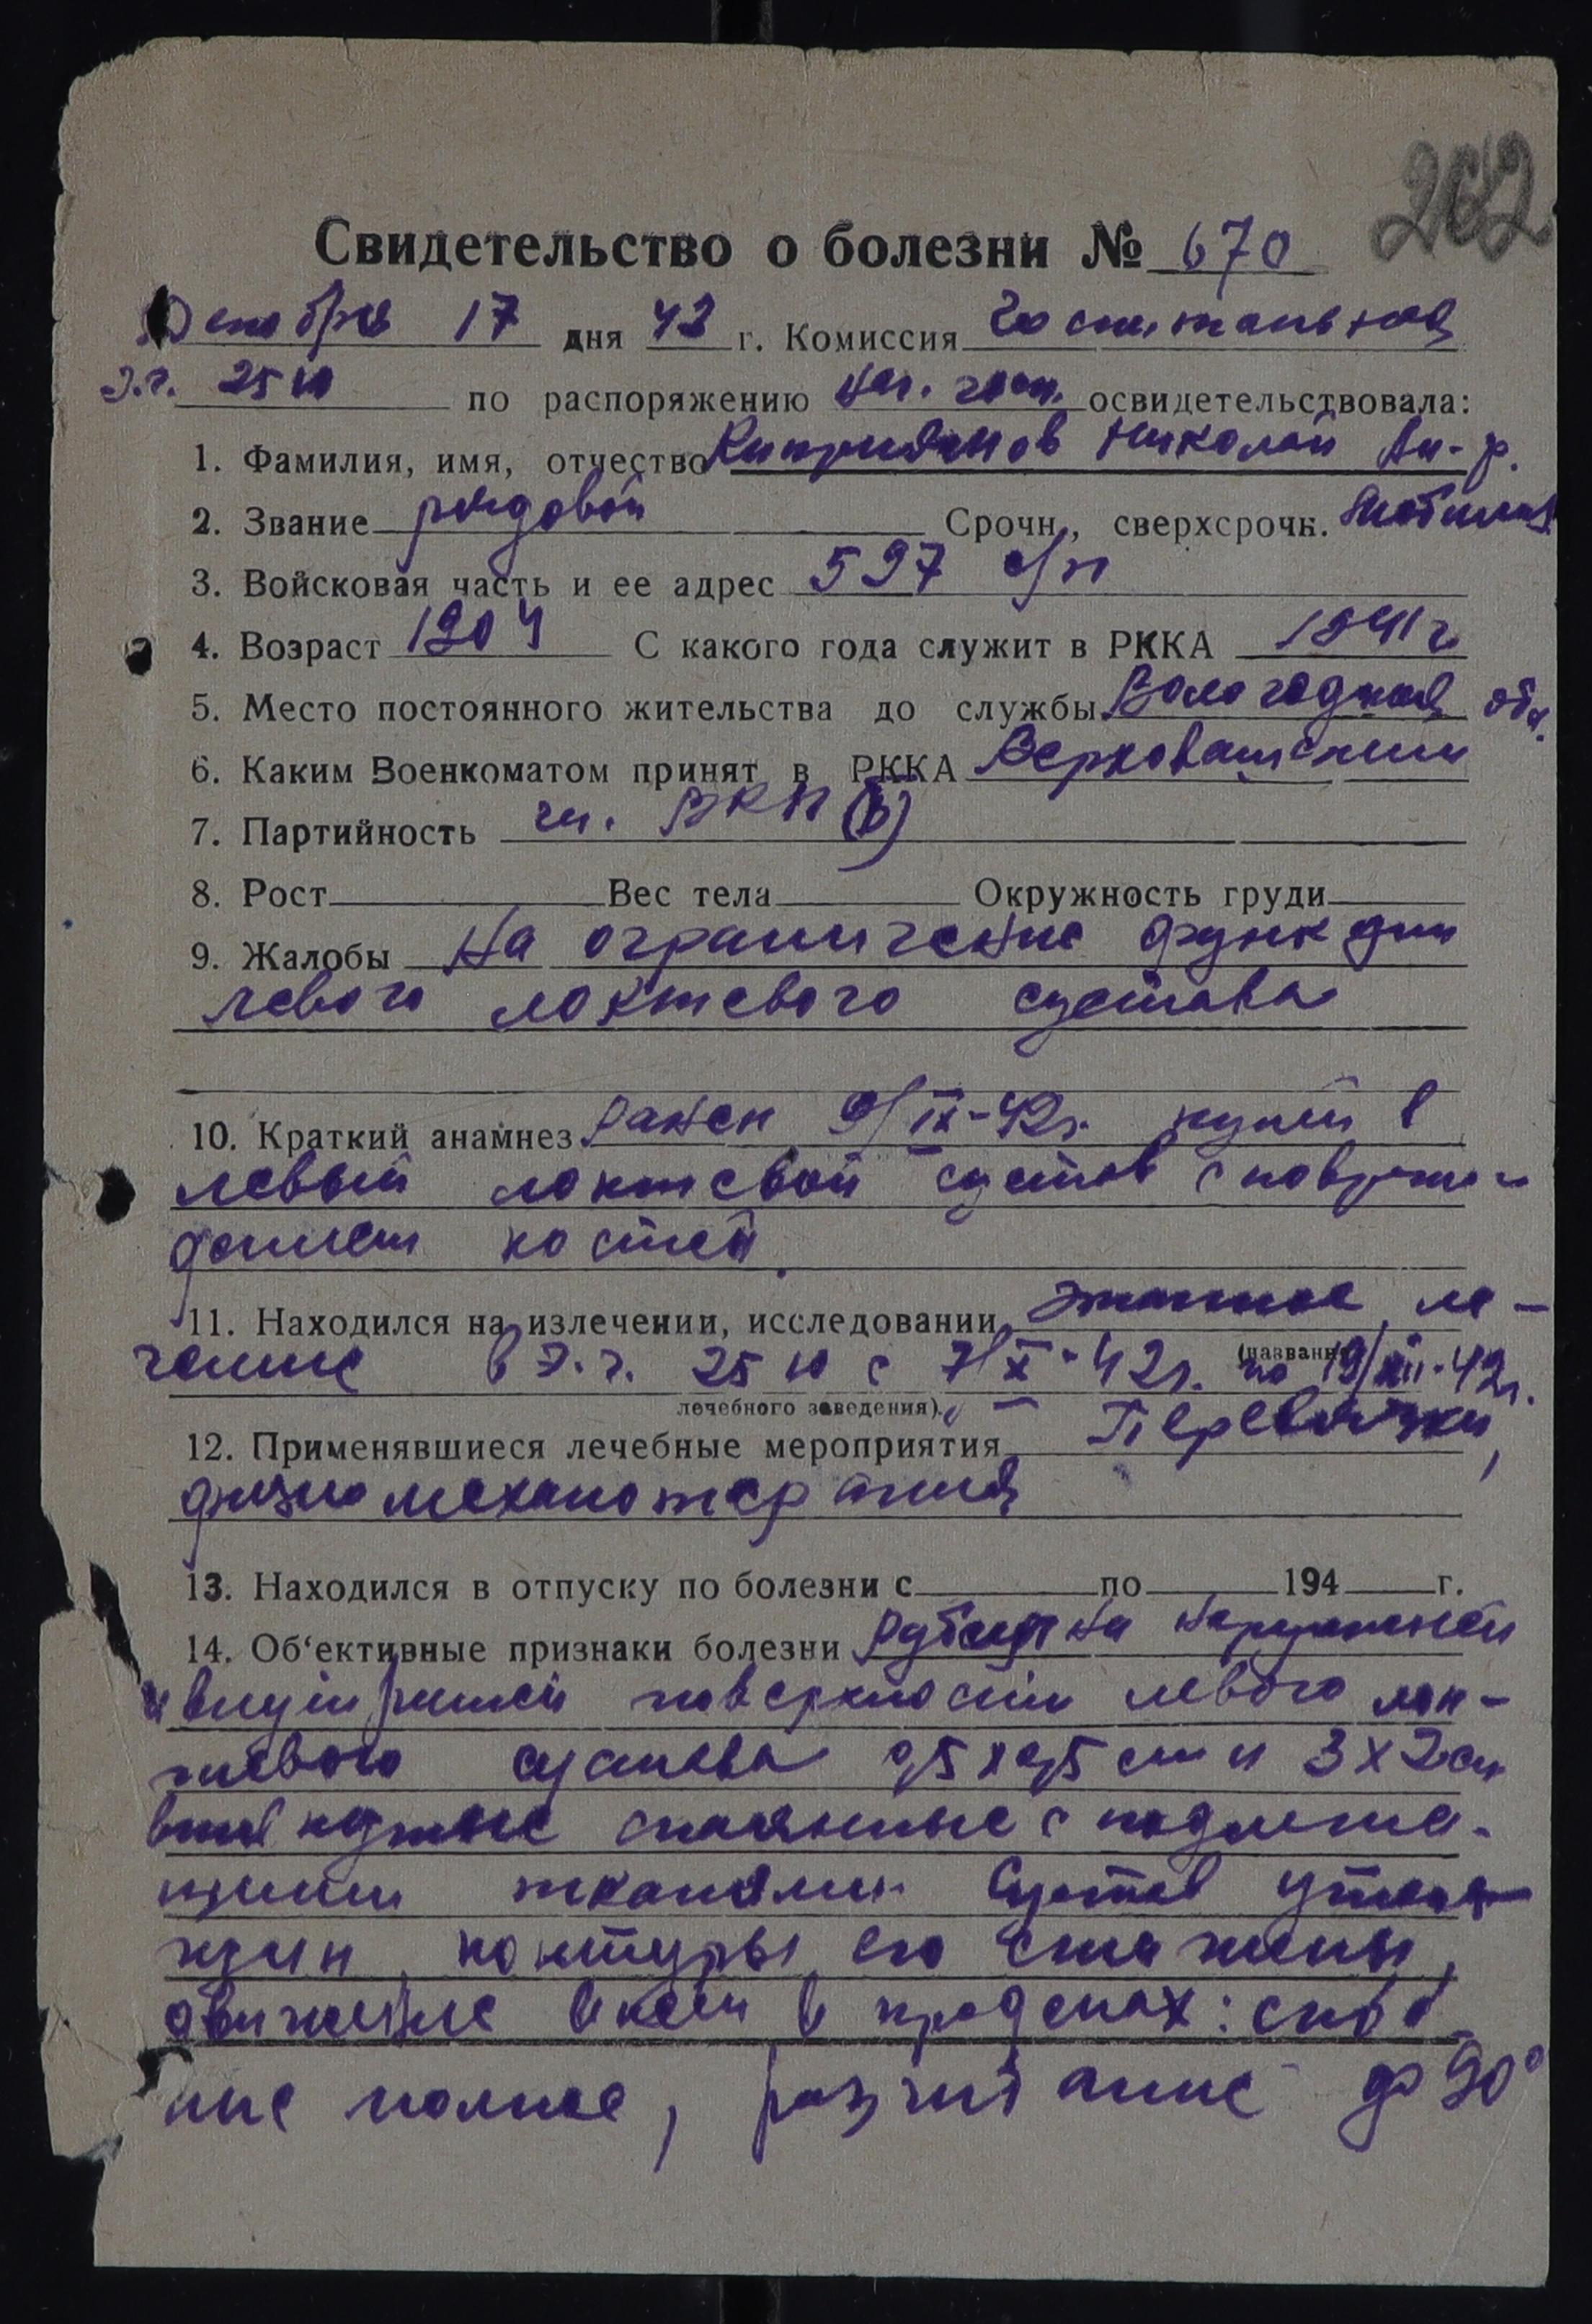 262
Свидетельство о болезни № 670
Декабря 17 дня 42 г. Комиссия Госпитальная
Э.г. 2510 по распоряжению нач. госп. освидетельствовала:
1. Фамилия, имя, отчество Киприянов Николай Ан-р.
2. Звание рядовой Срочн., сверхсрочн.
3. Войсковая часть и ее адрес 597 с/п
4. Возраст 1904 С какого года служит в РККА 1941 г
5. Место постоянного жительства до службы Вологодская обл.
6. Каким Военкоматом принят в РККА Верховажским
7. Партийность чл. ВКП(б)
8. Рост Вес тела Окружность груди
9. Жалобы На ограничение функции
левого локтевого сустава
10. Краткий анамнез Ранен 9/IX-42г. пулей в
левый локтевой сустав с повреж-
дением костей.
11. Находился на излечении, исследовании этапное ле-
(название
чение в Э.г. 2510 с 7/X-42г. по 19/XII-42г.
лечебного заведения)
12. Применявшиеся лечебные мероприятия Перевязки,
физиомеханотерапия
13. Находился в отпуску по болезни с по 194 г.
14. Об'ективные признаки болезни Рубцы на наружней
и внутренней поверхности левого лок-
тевого сустава 0,5х0,5 см и 3х2 см
спаянные с подлежа-
щими тканями. Сустав утол-
щен контуры его сглажены,
движение в нем в пределах: сгиба-
ние полное, разгибание до 90°